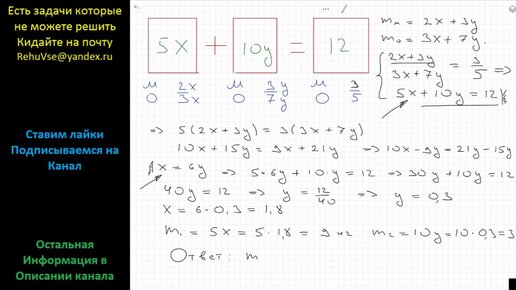 Есть задачи которые
не можете решить
Кидайте на почту
RehuVse@yandex.ru
Ставим лайки
Подписываемся на
Канал
Остальная
Информация в
Описании канала
5x + 10y = 12
М 2x 3y 3
О 3x 7y 5
m_м = 2x + 3y
m_о = 3x + 7y.
{ (2x+3y)/(3x+7y) = 3/5 =>
5x + 10y = 12
=> 5(2x+3y) = 3(3x+7y)
10x + 15y = 9x + 21y => 10x - 9x = 21y - 15y
x = 6y => 5·6y + 10·y = 12 => 30y + 10y = 12
40y = 12 => y = 12/40 => y = 0,3
x = 6·0,3 = 1,8
m₁ = 5x = 5·1,8 = 9 кг m₂ = 10y = 10·0,3 = 3
Ответ: m